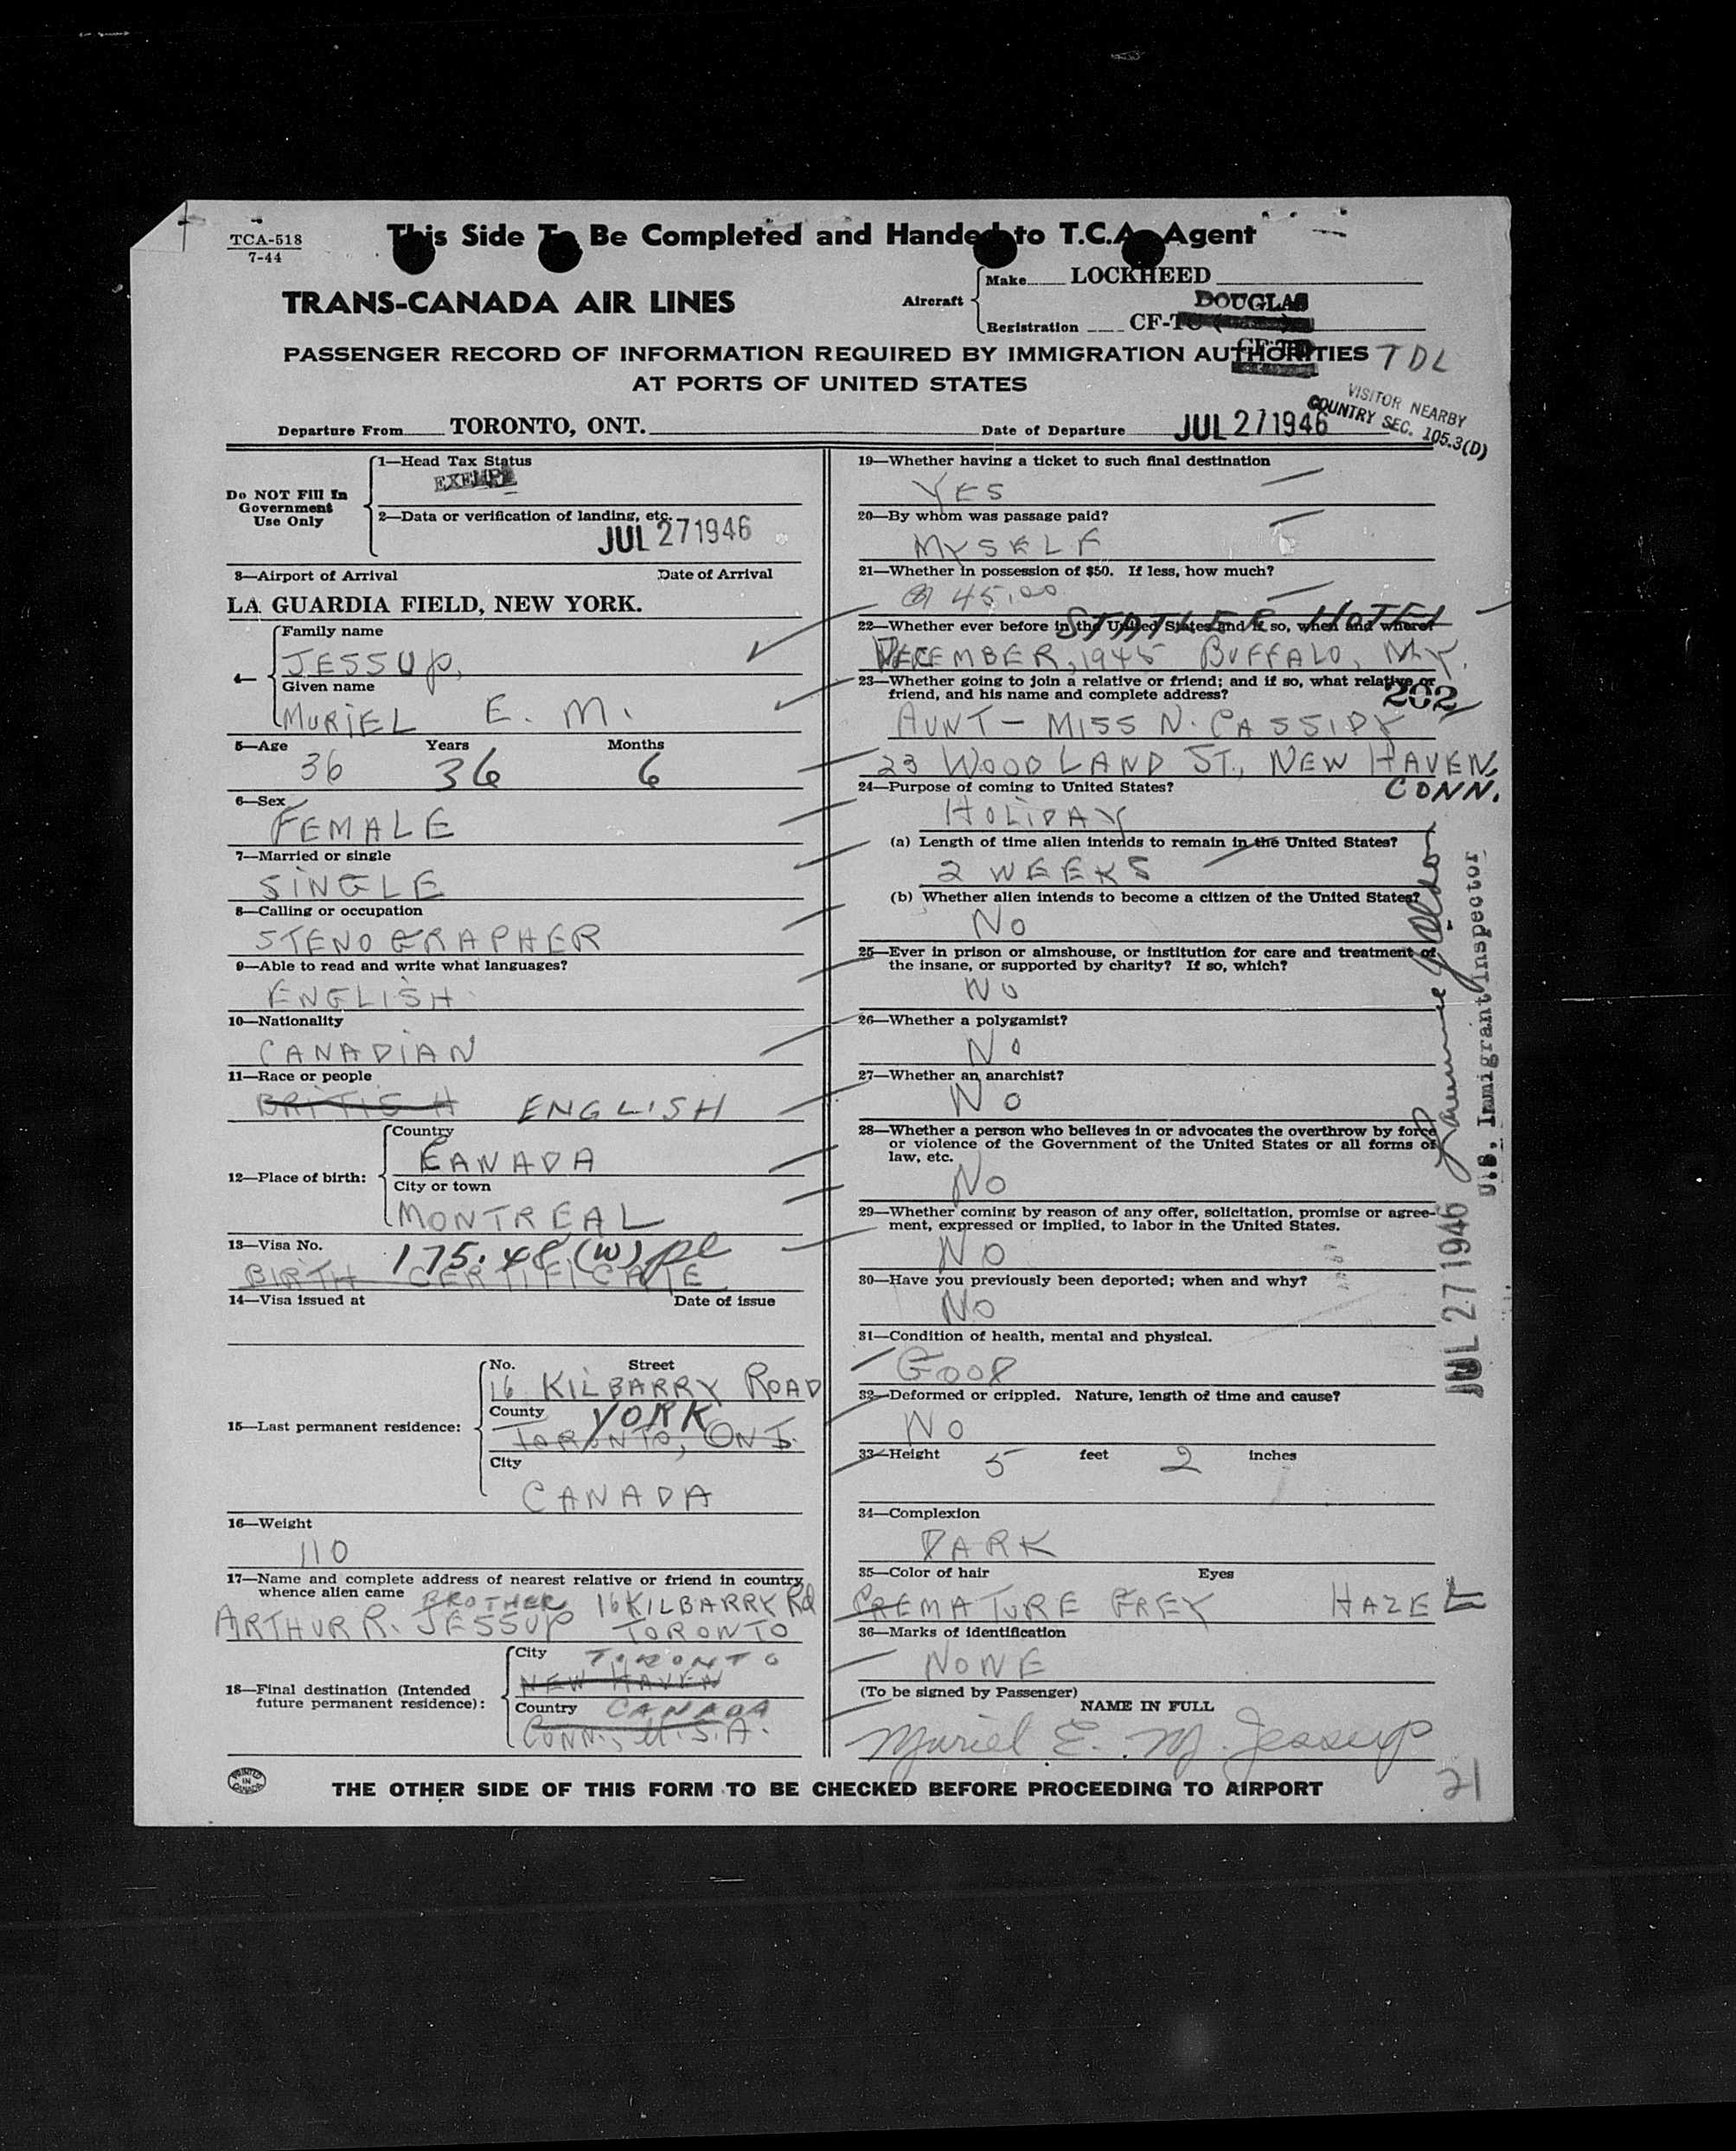 TCA-518
7-44
This Side To Be Completed and Handed to T.C.A. Agent
TRANS-CANADA AIR LINES
Aircraft
Make LOCKHEED
DOUGLAS
Registration CF-TC
CF-TD
TDL
PASSENGER RECORD OF INFORMATION REQUIRED BY IMMIGRATION AUTHORITIES
AT PORTS OF UNITED STATES
VISITOR NEARBY
COUNTRY SEC. 105.3(D)
Departure From TORONTO, ONT. Date of Departure JUL 27 1946
Do NOT Fill In
Government
Use Only
1—Head Tax Status
EXEMPT
2—Data or verification of landing, etc.
JUL 27 1946
3—Airport of Arrival Date of Arrival
LA GUARDIA FIELD, NEW YORK.
4—
Family name
JESSUP,
Given name
MURIEL E. M.
5—Age Years Months
36 36 6
6—Sex
FEMALE
7—Married or single
SINGLE
8—Calling or occupation
STENOGRAPHER
9—Able to read and write what languages?
ENGLISH
10—Nationality
CANADIAN
11—Race or people
BRITISH ENGLISH
12—Place of birth:
Country
CANADA
City or town
MONTREAL
13—Visa No.
175.48 (W)
BIRTH CERTIFICATE
14—Visa issued at Date of issue
15—Last permanent residence:
No. Street
16 KILBARRY ROAD
County
YORK
TORONTO, ONT.
City
CANADA
16—Weight
110
17—Name and complete address of nearest relative or friend in country
whence alien came
BROTHER 16 KILBARRY Rd
ARTHUR R. JESSUP TORONTO
18—Final destination (Intended
future permanent residence):
City TORONTO
NEW HAVEN
Country CANADA
CONN., U.S.A.
19—Whether having a ticket to such final destination
YES
20—By whom was passage paid?
MYSELF
21—Whether in possession of $50. If less, how much?
45.00
22—Whether ever before in the United States and if so, when and where?
STATLER HOTEL
DECEMBER, 1945 BUFFALO, N.Y.
23—Whether going to join a relative or friend; and if so, what relative or
friend, and his name and complete address?
202
AUNT - MISS N. CASSIDY
23 WOODLAND ST., NEW HAVEN,
CONN.
24—Purpose of coming to United States?
HOLIDAY
(a) Length of time alien intends to remain in the United States?
2 WEEKS
(b) Whether alien intends to become a citizen of the United States?
NO
25—Ever in prison or almshouse, or institution for care and treatment of
the insane, or supported by charity? If so, which?
NO
26—Whether a polygamist?
NO
27—Whether an anarchist?
NO
28—Whether a person who believes in or advocates the overthrow by force
or violence of the Government of the United States or all forms of
law, etc.
NO
29—Whether coming by reason of any offer, solicitation, promise or agree-
ment, expressed or implied, to labor in the United States.
NO
30—Have you previously been deported; when and why?
NO
31—Condition of health, mental and physical.
GOOD
32—Deformed or crippled. Nature, length of time and cause?
NO
33—Height 5 feet 2 inches
34—Complexion
DARK
35—Color of hair Eyes
PREMATURE GREY HAZEL
36—Marks of identification
NONE
(To be signed by Passenger)
NAME IN FULL
Muriel E. M. Jessup
U.S. Immigrant Inspector
JUL 27 1946
PRINTED IN CANADA
THE OTHER SIDE OF THIS FORM TO BE CHECKED BEFORE PROCEEDING TO AIRPORT
21